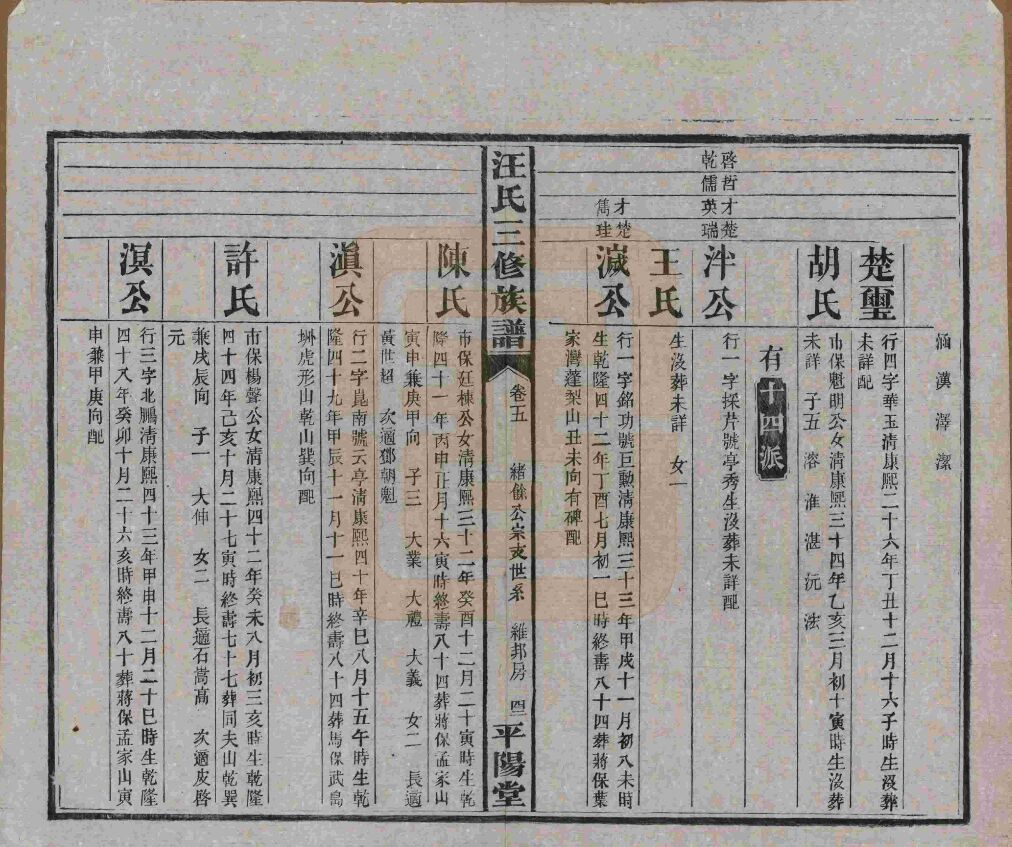 湳漢澤潔
楚璽
行四字華玉清康熙二十六年丁丑十二月十六子時生沒葬
未詳配
胡氏
市保魁明公女清康熙三十四年乙亥三月初十寅時生沒葬
未詳 子五 溶 淮 湛 沅 法
有十四派
啓哲才楚
乾儒英瑞
泮公
行一字採芹號亭秀生沒葬未詳配
王氏
生沒葬未詳 女一
才楚
雋珪
減公
行一字銘功號巨勳清康熙三十三年甲戌十一月初八未時
生乾隆四十二年丁酉七月初一巳時終壽八十四葬蔣保葉
家灣蓬梨山丑未向有碑配
汪氏三修族譜
卷五 緒餘公宗支世系 維邦房
平陽堂
陳氏
市保廷棟公女清康熙三十二年癸酉十二月二十寅時生乾
隆四十一年丙申正月十六寅時終壽八十四葬蔣保孟家山
寅申兼庚甲向 子三 大業 大禮 大義 女二 長適
黃世超 次適鄧朝魁
滇公
行二字崑南號云亭清康熙四十年辛巳八月十五午時生乾
隆四十九年甲辰十一月十一巳時終壽八十四葬馬保武昌
坳虎形山乾山巽向配
許氏
市保楊聲公女清康熙四十二年癸未八月初三亥時生乾隆
四十四年己亥十月二十七寅時終壽七十七葬同夫山乾巽
兼戌辰向 子一 大伸 女二 長適石嵩高 次適皮啓
元
溟公
行三字北鵬清康熙四十三年甲申十二月二十巳時生乾隆
四十八年癸卯十月二十六亥時終壽八十葬蔣保孟家山寅
申兼甲庚向配